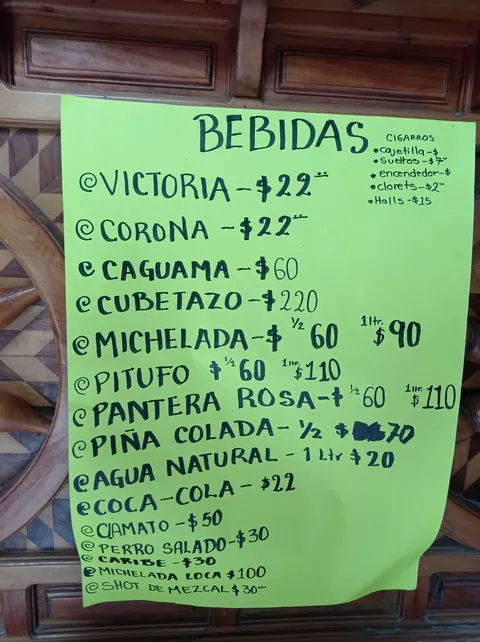 BEBIDAS
CIGARROS
•cajetilla-$
•Sueltos-$7
•encendedor-$
•clorets-$2
•Halls-$15
@VICTORIA-$22
@CORONA-$22
@CAGUAMA-$60
@CUBETAZO-$220
@MICHELADA-$ 1/2 60 1ltr. $90
@PITUFO $ 1/2 60 1ltr. $110
@PANTERA ROSA-$ 1/2 60 1ltr. $110
@PIÑA COLADA- 1/2 $ 70
@AGUA NATURAL - 1 Ltr $20
@COCA-COLA- $22
@CLAMATO-$50
@PERRO SALADO-$30
@CARIBE-$30
@MICHELADA LOCA $100
@SHOT DE MEZCAL $30